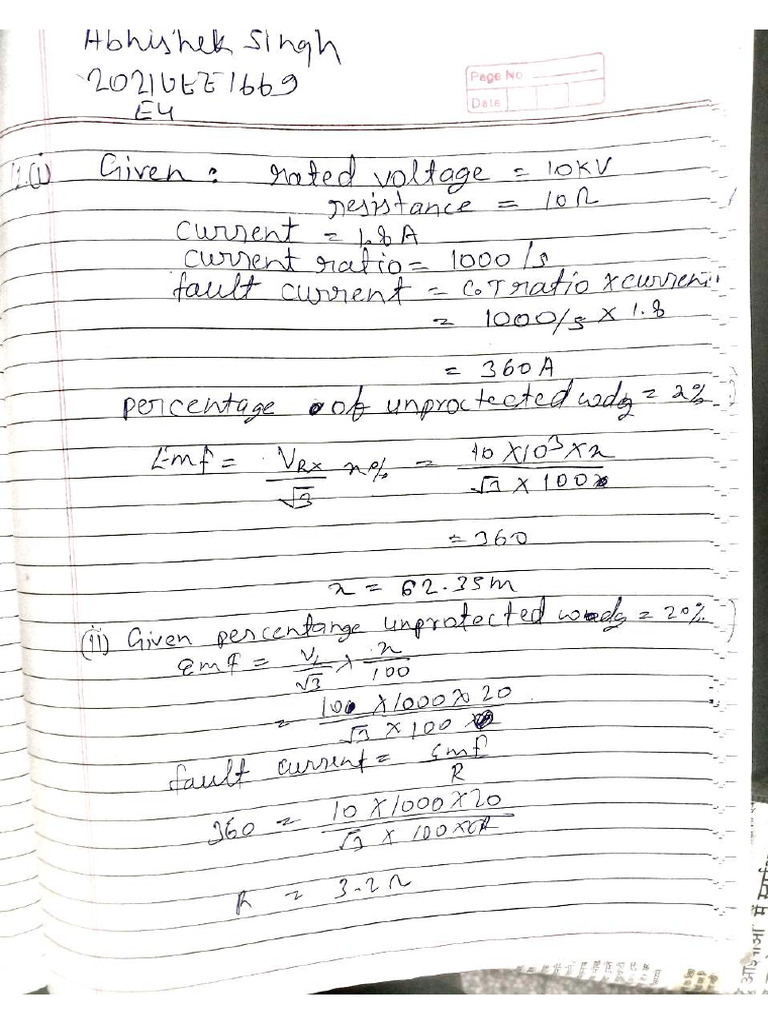 Abhishek Singh
2021UEE1669
E4
Page No
Date
1.(i) Given : rated voltage = 10KV
resistance = 10Ω
current = 1.8A
current ratio = 1000/5
fault current = C.T ratio × curren
= 1000/5 × 1.8
= 360A
percentage of unproctected wdg = x%
Emf = VR× / √3 x% = 10 × 10³ × x / √3 × 100
= 360
x = 62.35m
(ii) Given percentange unprotected wdg = 20%
emf = VL / √3 × x / 100
= 100 × 1000 × 20 / √3 × 100
fault current = emf / R
360 = 10 × 1000 × 20 / √3 × 100 × R
R = 3.2Ω